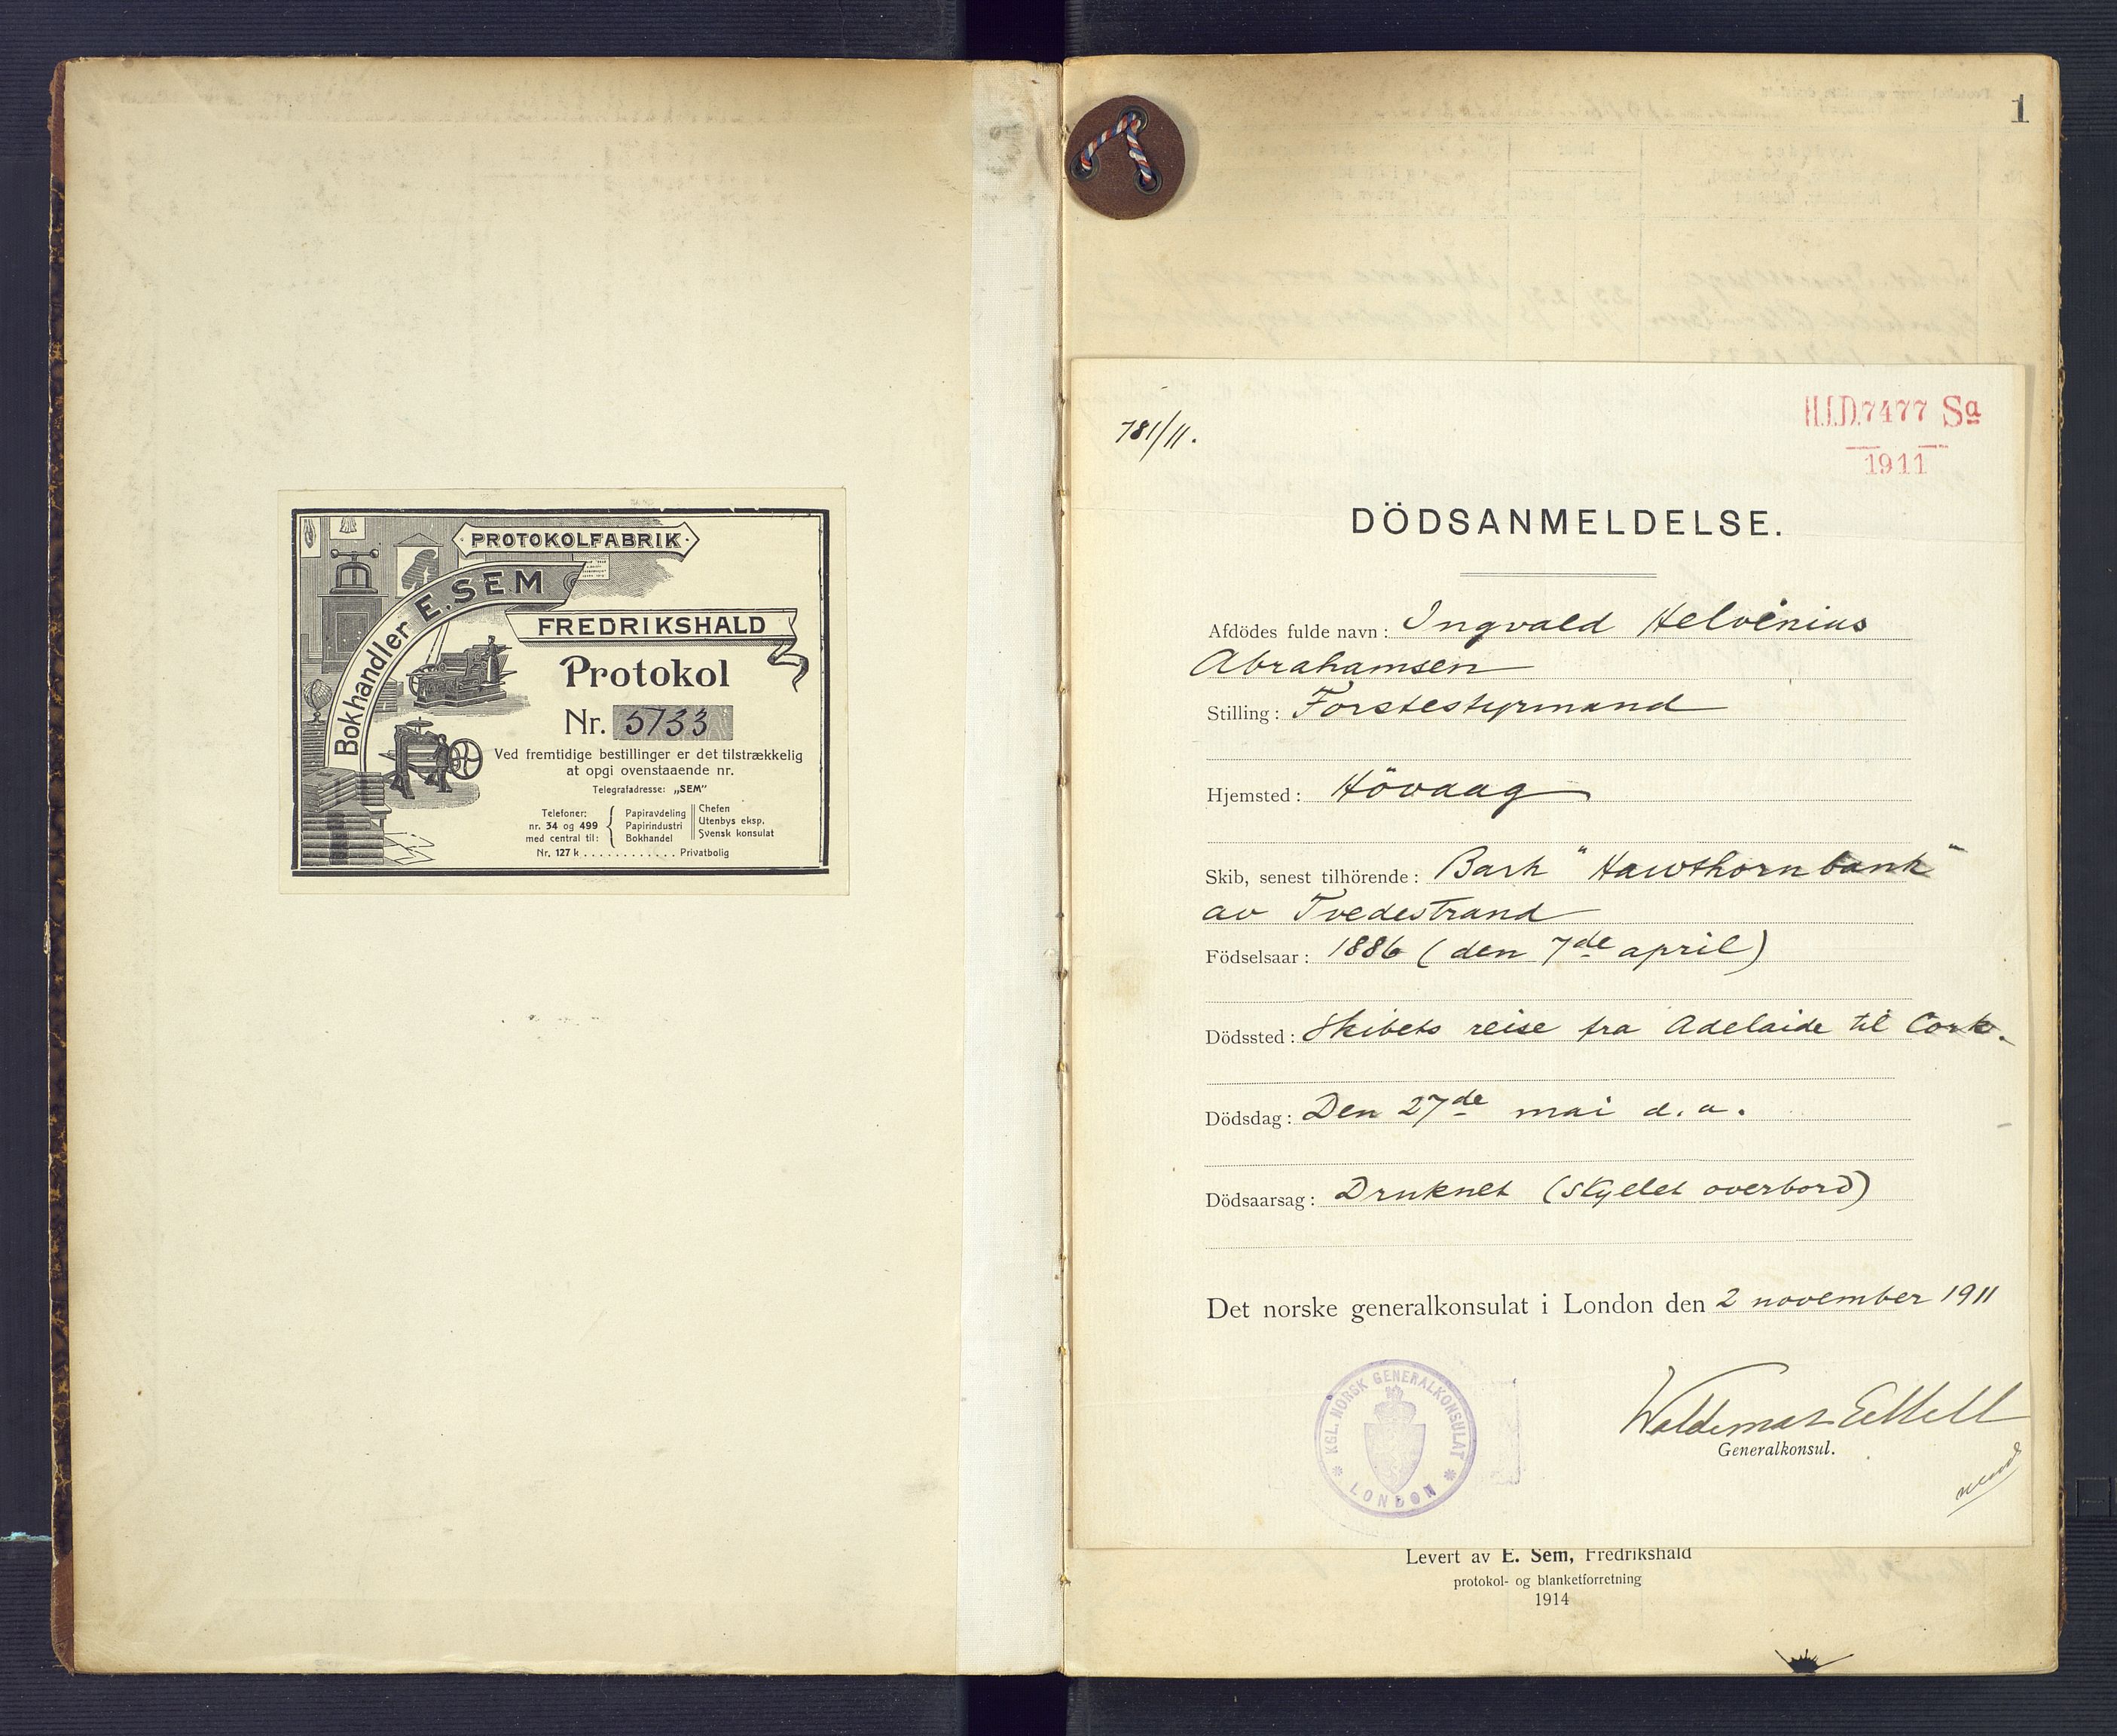 PROTOKOLFABRIK
Bokhandler E. SEM
FREDRIKSHALD
Protokol
Nr. 5733
Ved fremtidige bestillinger er det tilstrækkelig
at opgi ovenstaaende nr.
Telegrafadresse: „SEM"
Telefoner:
nr. 34 og 499
med central til:
Papiravdeling
Papirindustri
Bokhandel
Chefen
Utenbys eksp.
Svensk konsulat
Nr. 127 k . . . . . . . . . . . . Privatbolig
1
781/11.
H.J.D.7477 Sa
1911
DÖDSANMELDELSE.
Afdödes fulde navn: Ingvald Helvinius
Abrahamsen
Stilling: Förstestyrmand
Hjemsted: Hövaag
Skib, senest tilhörende: Bark "Hawthornbank"
av Tvedestrand
Födselsaar: 1886 (den 7de april)
Dödssted: Skibets reise fra Adelaide til Cork.
Dödsdag: Den 27de mai d. a.
Dödsaarsag: Druknet (skyllet overbord)
Det norske generalkonsulat i London den 2 november 1911
KGL. NORSK GENERALKONSULAT
LONDON
Generalkonsul.
Levert av E. Sem, Fredrikshald
protokol- og blanketforretning
1914